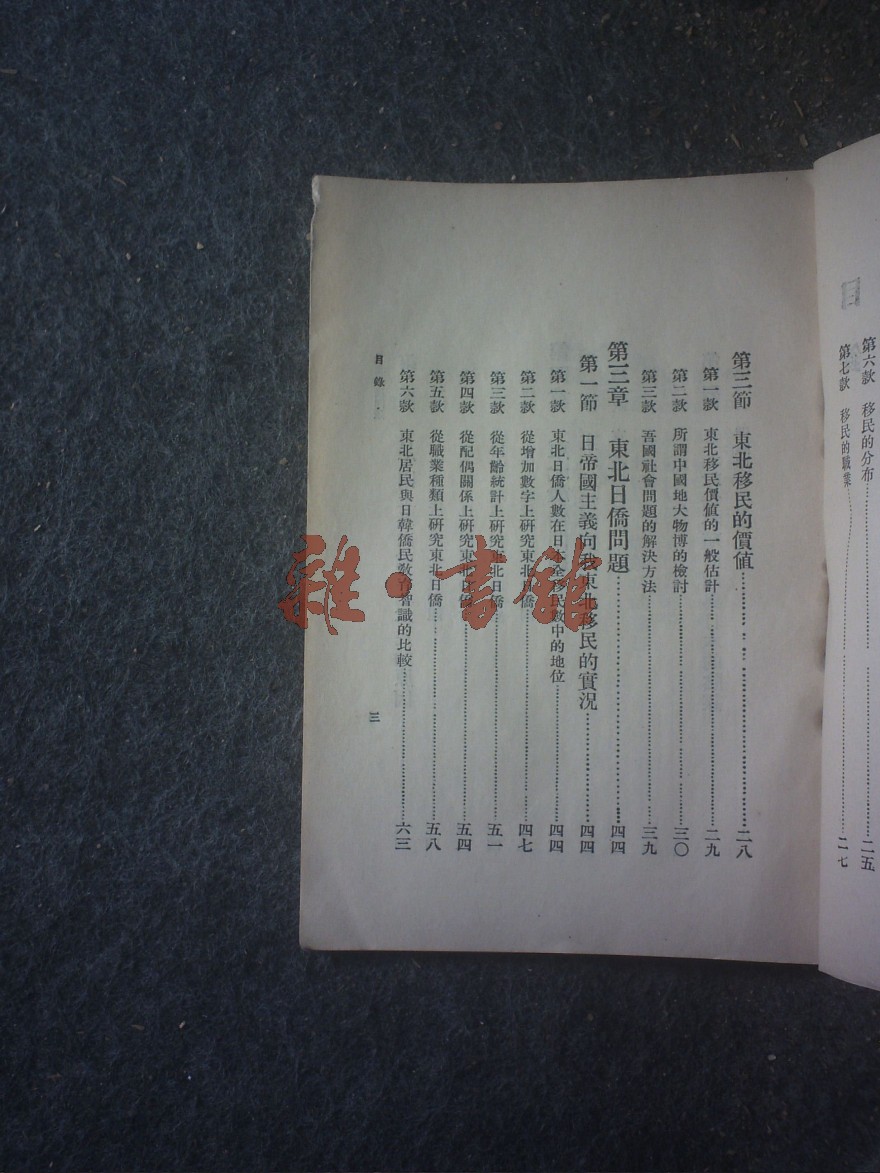 目
第六款 移民的分布………二五
第七款 移民的職業………二七
第三節 東北移民的價値………二八
第一款 東北移民價値的一般估計………二九
第二款 所謂中國地大物博的檢討………三〇
第三款 吾國社會問題的解決方法………三九
第三章 東北日僑問題………四四
第一節 日帝國主義向我東北移民的實況………四四
第一款 東北日僑人數在日本全移民數中的地位………四四
第二款 從增加數字上硏究東北日僑………四七
第三款 從年齡統計上硏究東北日僑………五一
第四款 從配偶關係上硏究東北日僑………五四
第五款 從職業種類上硏究東北日僑………五八
第六款 東北居民與日韓僑民敎育智識的比較………六三
目錄
三
雜·書館